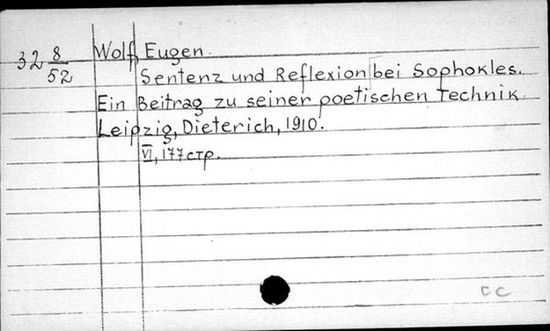 32 8/52
Wolf, Eugen.
Sentenz und Reflexion bei Sophokles.
Ein Beitrag zu seiner poetischen Technik.
Leipzig, Dieterich, 1910.
VI, 177 стр.
CC